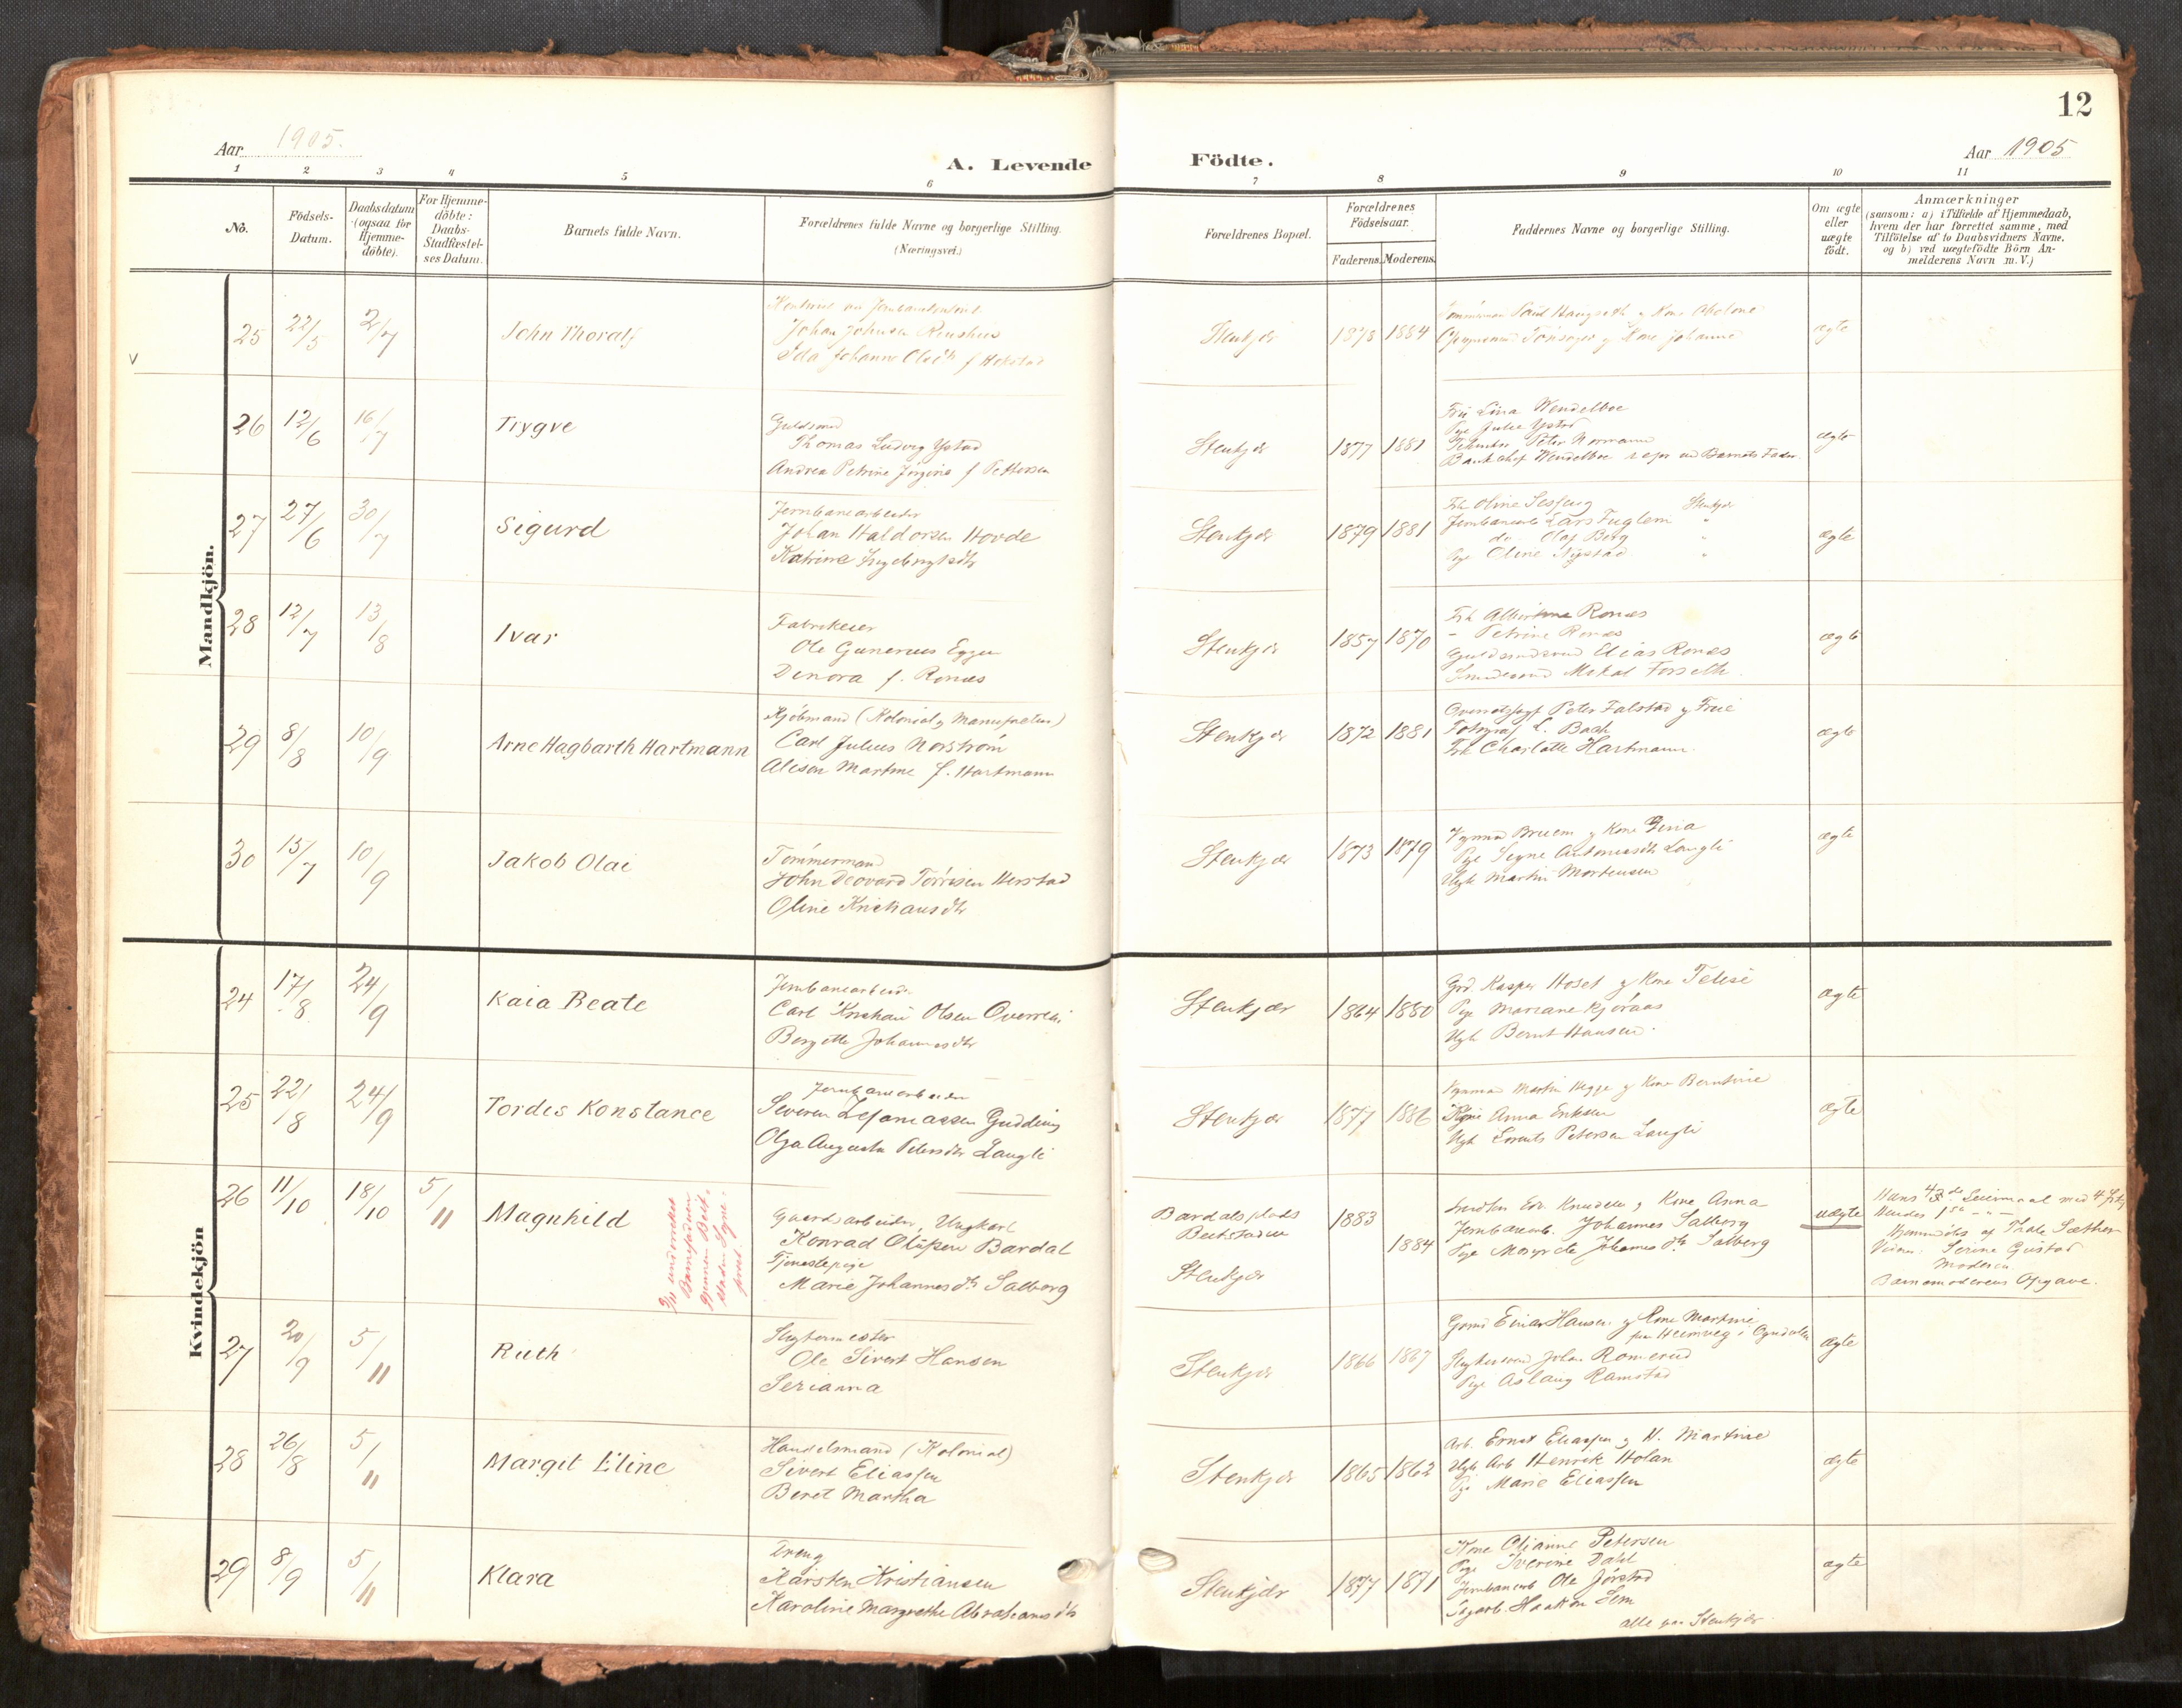 12
Aar 1905.
A. Levende Födte.
Aar 1905
1 2 3 4 5 6 7 8 9 10 11
No.
Födsels-Datum.
Daabsdatum (ogsaa for Hjemme-döbte).
For Hjemme-döbte: Daabs-Stadfæstel-ses Datum.
Barnets fulde Navn.
Forældrenes fulde Navne og borgerlige Stilling.
(Næringsvei.)
Forældrenes Bopæl.
Forældrenes Födselsaar.
Faderens. Moderens.
Faddernes Navne og borgerlige Stilling.
Om ægte eller uægte födt.
Anmærkninger
(saasom: a) i Tilfælde af Hjemmedaab,
hvem der har forrettet samme, med
Tilföielse af to Daabsvidners Navne,
og b) ved uægtefödte Börn An-
melderens Navn m. V.)
Mandkjön.
25 22/5 2/7 John Thoralf
Johan Johnsen
Ida Johanne f. Hokstad
Stenkjær 1878 1884
Kone Johanne
ægte
26 12/6 16/7 Trygve
Guldsmed
Thomas Ludvig Ystad
Andrea Petrine Jörgine f Pettersen
Stenkjær 1877 1881
Fru Lina Wendelboe
Pige Julie Ystad
Peter Normann
Bankchef Wendelboe Barnets Fader.
ægte
27 27/6 30/7 Sigurd
Jernbanearbeider
Johan Haldorsen Hovde
Katrine Ingebrigtsdtr
Stenkjær 1879 1881
Frk Oline Stenkjær
Jernbanearb Lars Fuglem "
do Olaf Berg "
Pige Oline Nystad "
ægte
28 12/7 13/8 Ivar
Fabrikeier
Ole Gunerius Egge
Denora f. Ronæs
Stenkjær 1857 1870
Frk Albertine Ronæs
- Petrine Ronæs
Guldsmedsvend Elias Ronæs
Smedsvend Mikal Forseth.
ægte
29 8/8 10/9 Arne Hagbarth Hartmann
Kjöbmand (Kolonial og Manufactur)
Carl Julius Norström
Alisen Martine f. Hartmann
Stenkjær 1872 1881
Overretssagf Peter Falstad og Frue
Fotograf L. Bach
Frk Charlotte Hartmann.
ægte
30 15/7 10/9 Jakob Olai
Tömmermand
John Deovard Törrisen Herstad
Oline Kristiansdtr
Stenkjær 1873 1879
Bruem og Kone
Pige Signe Antoniusdtr Langli
Ungk Martin Mortensen
ægte
Kvindekjön
24 17/8 24/9 Kaia Beate
Jernbanearbeider
Carl Kristian Olsen Overrein
Bergitte Johannesdtr
Stenkjær 1864 1880
Grd. Kasper Hoset og Kone Telise
Pige Mariane Kjöraas
Ungk Bernt Hansen.
ægte
25 22/8 24/9 Tordis Konstance
Jernbanearbeider
Severin Gudding
Olga Augusta Petersdtr Langli
Stenkjær 1877 1886
Martin Hegge og Kone Berntine
Pige Anna Eriksen
Ungk Lorents Petersen Langli
ægte
26 11/10 18/10 5/11 Magnhild
Gaardsarbeider, Ungkarl
Konrad Olufsen Bardal
Tjenestepige
Marie Johannesdtr Salberg
Bardalsplads
Beitstaden
Stenkjær
1883
1884
Edv. Knudsen og Kone Anna
Jernbanearb. Johannes Salberg
Pige Margrete Johannesdtr Salberg
uægte
Hans Leiermaal med
Hendes 1ste - " -
Hjemmedöbt af Thale Sæther
Vidner: Serine Gustad
Moderen
Barnemoderens Opgave.
27 20/9 5/11 Ruth
Slagtermester
Ole Sivert Hansen
Serianna
Stenkjær 1866 1867
Gaard. Einar Hansen og Kone Martine
fra Heimveg i Ogndalen
Slagtersvend Johan Romerud
Pige Aslaug Ramstad
ægte
28 26/8 5/11 Margit Eline
Handelsmand (Kolonial)
Sivert Eliassen
Beret Martha
Stenkjær 1865 1862
Arb. Ernst Eliassen og K. Martine
Ungk Arb Henrik Holan
Pige Marie Eliassen
ægte
29 8/9 5/11 Klara
Dreng
Karsten Kristiansen
Karoline Margrethe Abrahamsdtr
Stenkjær 1877 1871
Kone Olianne Petersen
Pige Iverine Dahl
Jernbanearb Ole Jörstad
Sagarb. Haakon Sem
alle paa Stenkjær
ægte